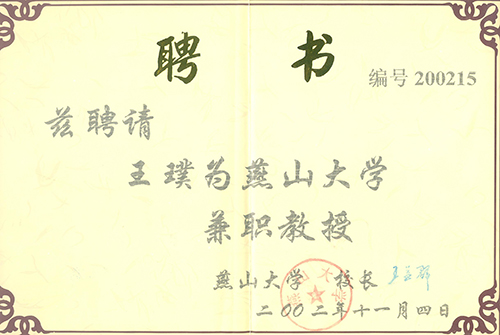 聘 书
编号 200215
兹聘请
王璞为燕山大学
兼职教授
燕山大学 校长
二〇〇二年十一月四日